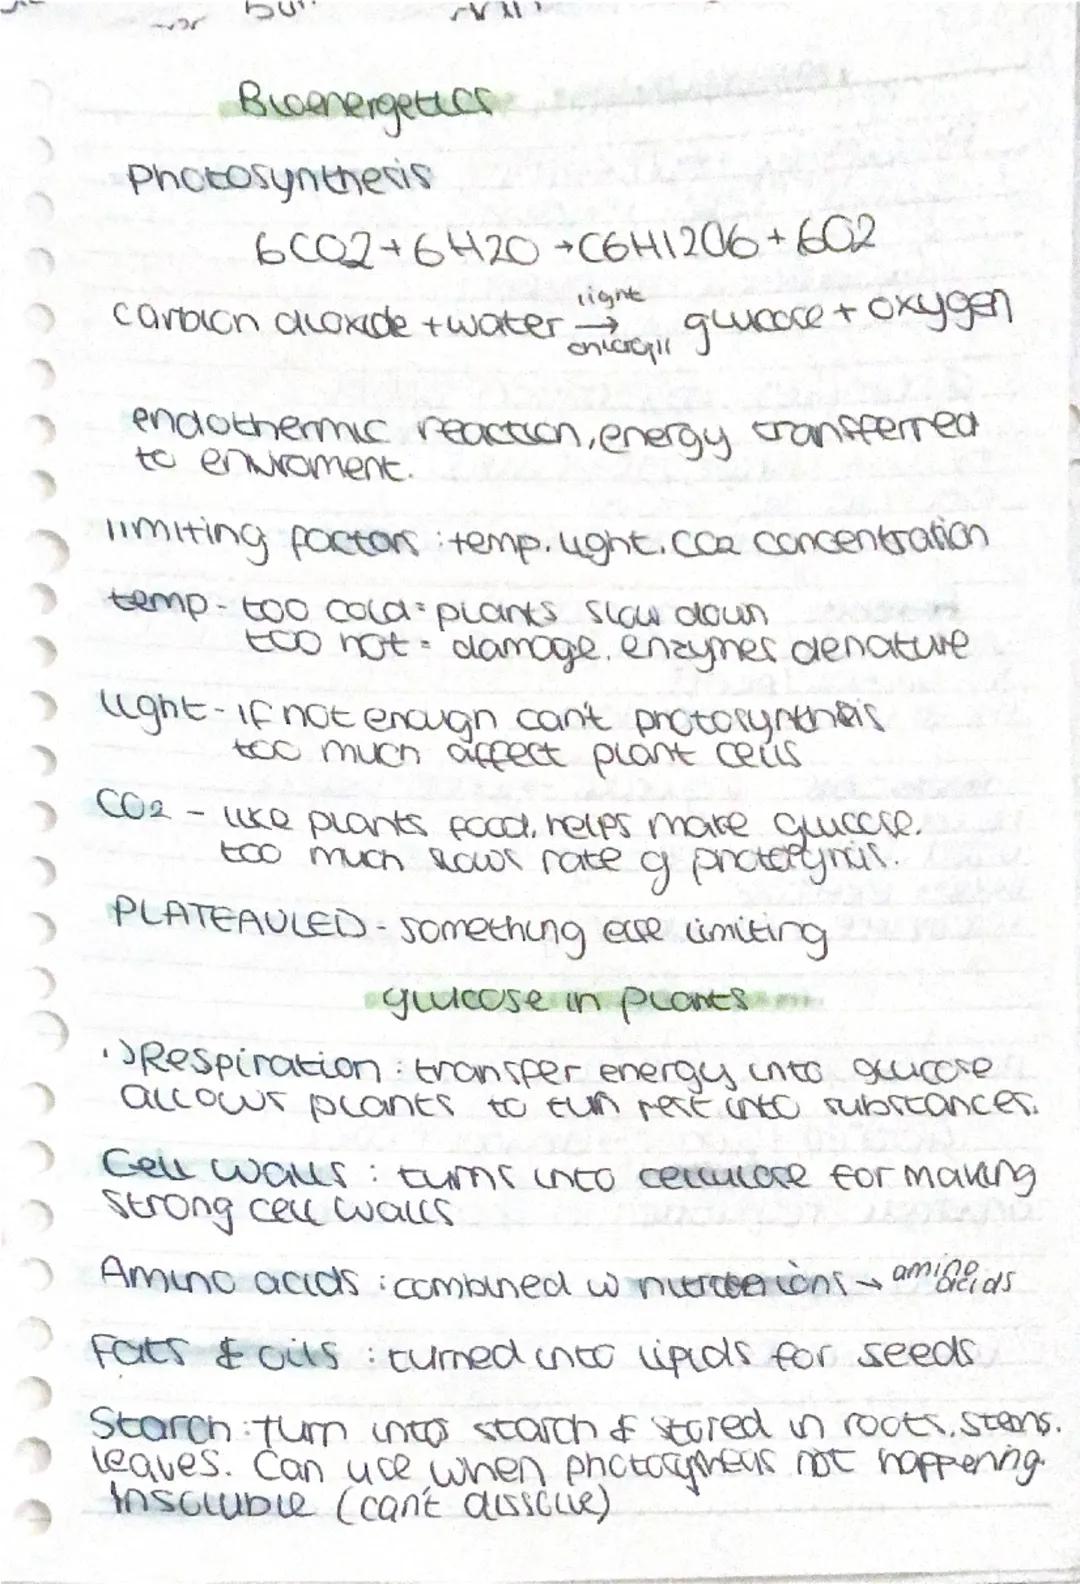 Bioenergetics
Photosynthesis
6CO2+6H2O→C6H12O6+6O2
light
carbion dioxide +water → glucose + oxygen
endothermic reaction, energy transferred
to enviroment.
limiting factors : temp. light. CO2 concentration
temp - too cold = plants slow down
too hot = damage. enzymes denature
light - if not enough can't protosynthsis
too much affect plant cells
CO2 - like plants food. helps make glucose.
too much slows rate of
PLATEAULED - something else limiting
glucose in plants
Respiration : transfer energy into glucose
allows plants to turn rest into substances.
Cell walls : turns into cellulose for making
strong cell walls
Amino acids : combined w ions → amino acids
Fats & oils : turned into lipids for seeds
Starch : Turn into starch & stored in roots. stems.
leaves. Can use when photosynthesis not happening.
Insoluble (can't dissolve)